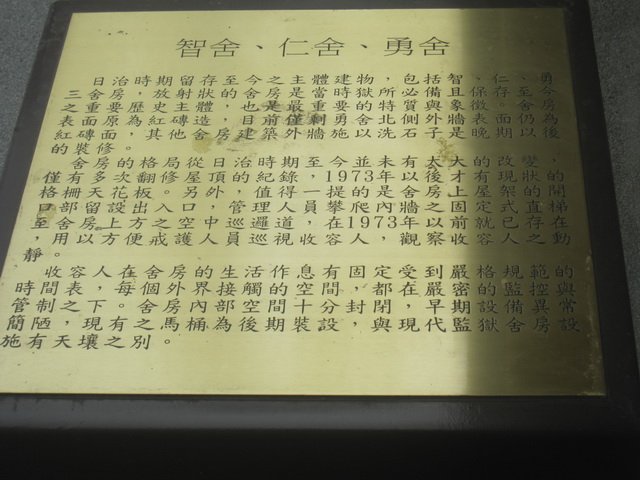 智舍、仁舍、勇舍
日治時期留存至今之主體建物，包括智、仁、勇
三舍房，放射狀的舍房是當時獄所必備且保存至今
之重要歷史主體，也是最重要的特質與象徵。舍房
表面原為紅磚造，目前僅剩勇舍北側外牆表面仍為
紅磚面，其他舍房建築外牆施以洗石子是晚期以後
的裝修。
舍房的格局從日治時期至今並未有太大的改變，
僅有多次翻修屋頂的紀錄，1973年以後才有現狀的
格柵天花板。另外，值得一提的是舍房上屋架的開
口部留設出入口，管理人員攀爬內牆之固定式直梯
至舍房上方之空中巡邏道，在1973年以前就已存在
，用以方便戒護人員巡視收容人，觀察收容人之動
靜。
收容人在舍房的生活作息有固定受到嚴格規範的
時間表，每個外界接觸的空間，都在嚴密的監控與
管制之下。舍房內部空間十分封閉，早期設備異常
簡陋，現有之馬桶為後期裝設，與現代監獄舍房設
施有天壤之別。